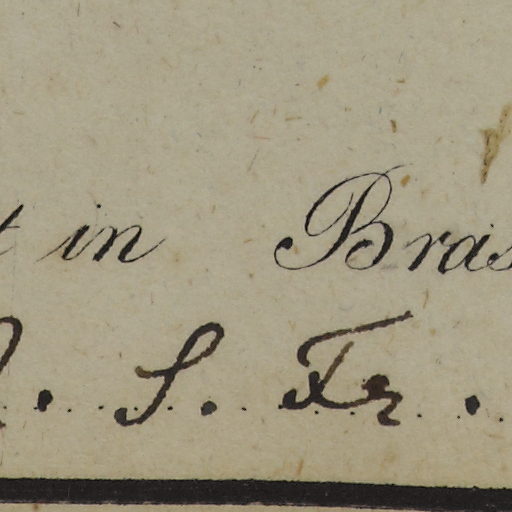 t in Bras
. S. Fr .